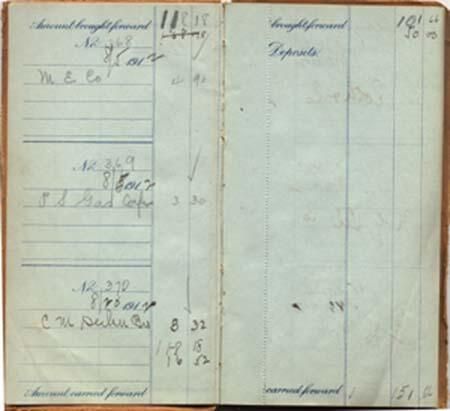 Amount brought forward 118 18
No. 368
8/5 1912
M E Co 4 92
No. 369
8/5 1912
P S Gas 3 30
No. 370
8/20 1912
C M 8 32
118 18
16 52
Amount carried forward
brought forward 101 66
Deposits. 50 00
carried forward 151 66